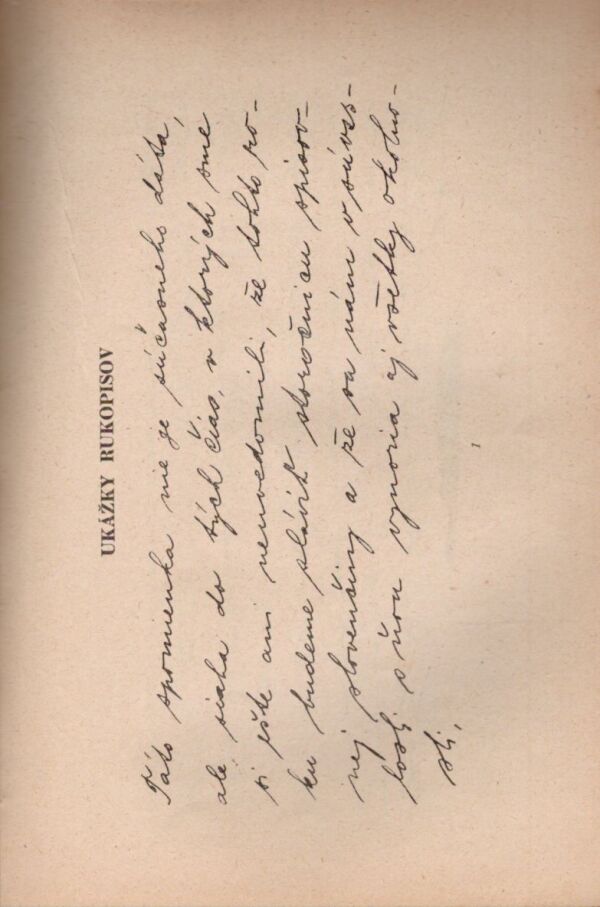 UKÁŽKY RUKOPISOV
Táto spomienka nie je súčasného dáta,
ale siaha do tých čias, v ktorých sme
si ešte ani neuvedomili, že tohto ro-
ku budeme sláviť storočnicu spisov-
nej slovenčiny a že sa nám v súvis-
losti s ňou vynoria aj všetky okolno-
sti.
1